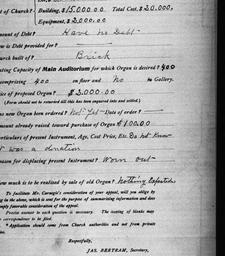 of Church?- Building, $15,000.00 Total Cost, $20,000,
Equipment, $3,000.00
Amount of Debt? Have no Debt
is Debt provided for?
Church built of? Brick
Seating Capacity of Main Auditorium for which Organ is desired? 400
comprising 400 on floor and no in Gallery.
Price of proposed Organ? $2,000.00
(Form should not be returned till this has been inquired into and settled.)
new Organ been ordered? Not Yet Date of order?
Amount already raised toward purchase of Organ $100.00
Particulars of present Instrument, Age, Cost Price, Etc. Do not Know
It was a donation
Reason for displacing present Instrument? Worn out
How much is to be realized by sale of old Organ? Nothing Expected
To facilitate Mr. Carnegie's consideration of your appeal, will you oblige by
ing in the above, which is sent for the purpose of summarizing information and does
imply favorable consideration of the appeal.
Precise answer to each question is necessary. The tearing of blanks may
correspondence to be filed.
Application should come from Church authorities and not from private
Respectfully,
JAS. BERTRAM, Secretary,